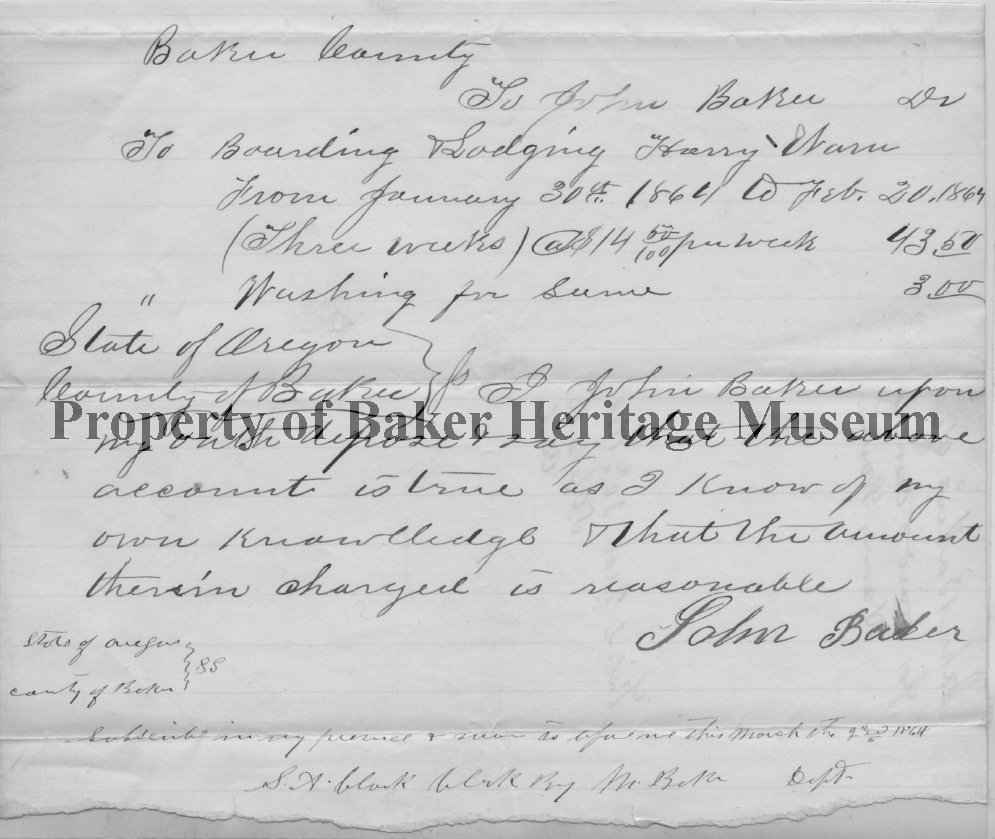 Baker County
To John Baker Dr
To Boarding & Lodging Harry Warn
From January 30th. 1864 to Feb. 20. 1864
(Three weeks) @ $14 50/100 per week 43.50
" Washing for same 3.00
State of Oregon
County of Baker } SS I John Baker upon
my oath depose & say that the above
account is true as I know of my
own knowlledge & that the amount
therein charged is reasonable
John Baker
State of oregon
county of Baker } SS
Subscribe in my presence & sworn to before me this March the 1864
S. A. Clark Clerk By M. Baker Dept
Property of Baker Heritage Museum